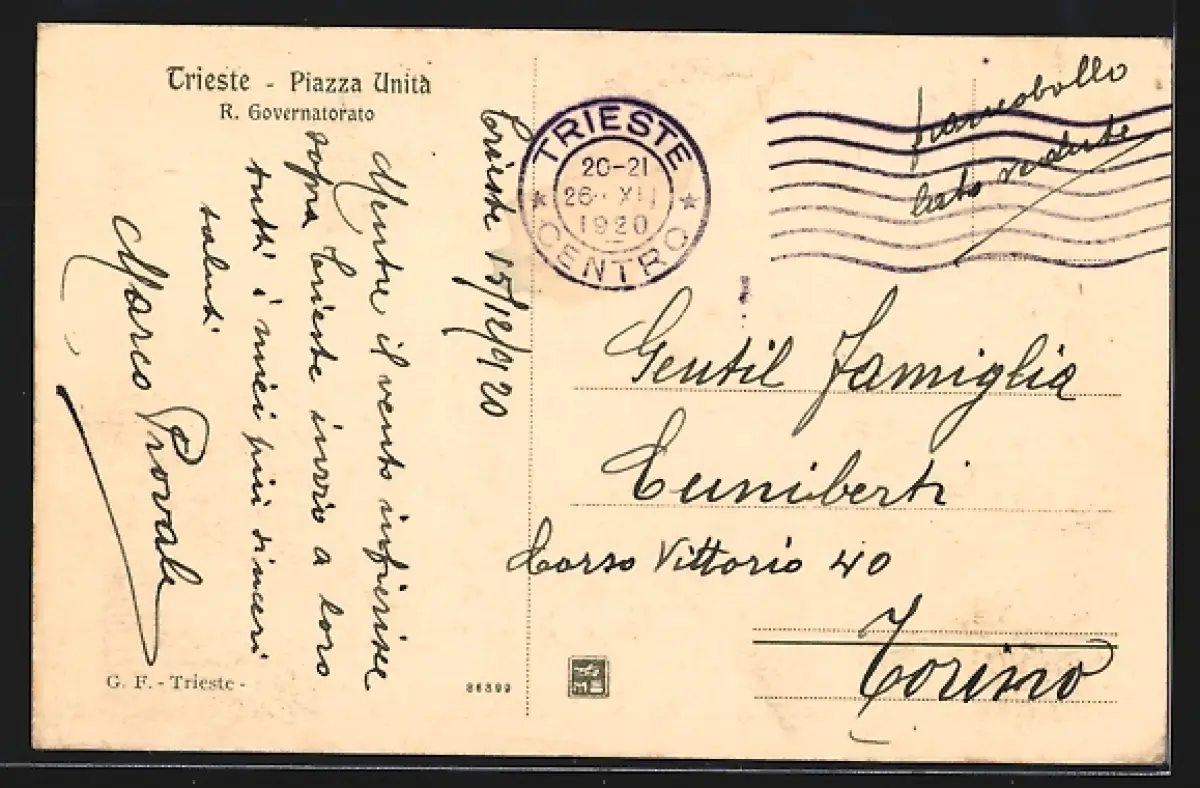 Trieste - Piazza Unità
R. Governatorato
Trieste 15/12/920
Mentre il vento infierisce
sopra Trieste invio a loro
tutti i miei più sinceri
saluti
Marco Provale
G. F. - Trieste -
86399
TRIESTE
20-21
26 XII
1920
CENTRO
francobollo
lato vedute
Gentil Famiglia
Cuniberti
Corso Vittorio 40
Torino